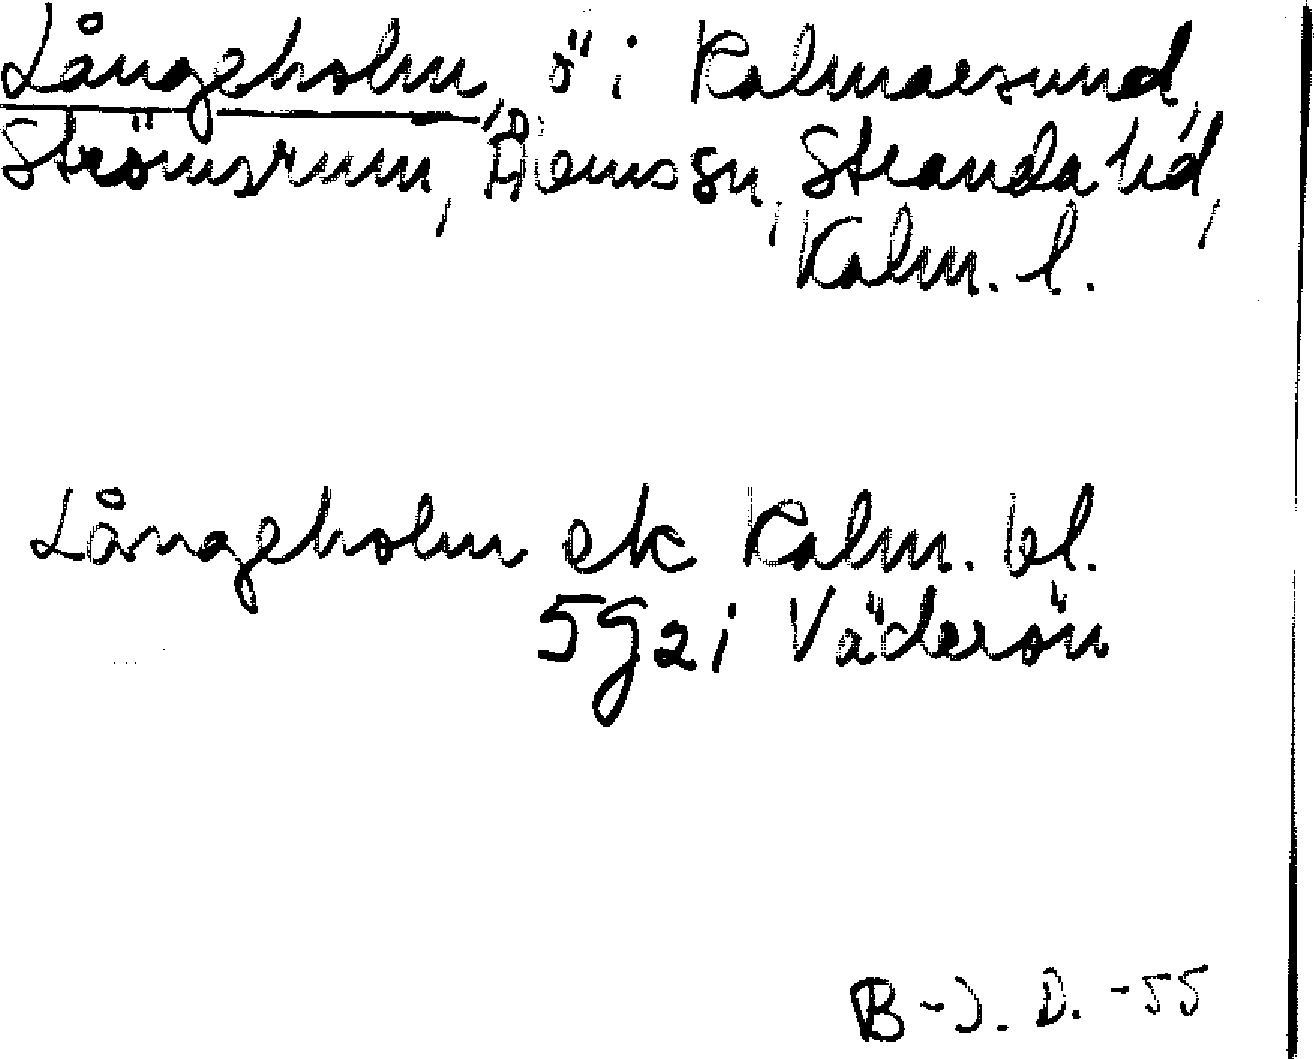 Långeholm, ö i Kalmarsund,
Strömsrum, Ålems sn, Stranda hd,
Kalm. l.
Långeholm ek Kalm. bl.
5G2i Väderön
B-J. D. -55